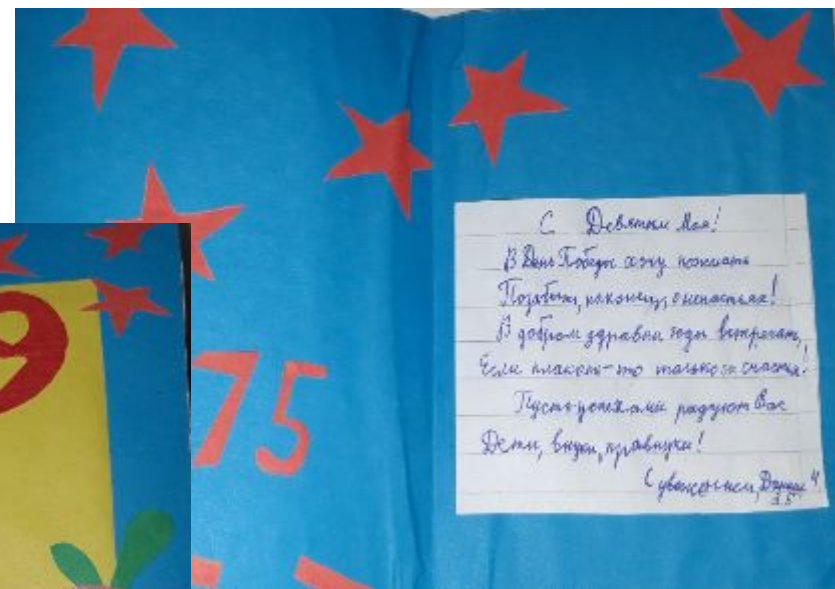 9
75
С Девятым Мая!
В День Победы хочу пожелать
Позабыть, наконец, о ненастьях!
В добром здравии годы встречать,
Если плакать - то только от счастья!
Пусть успехами радуют Вас
Дети, внуки, правнуки!
С уважением,